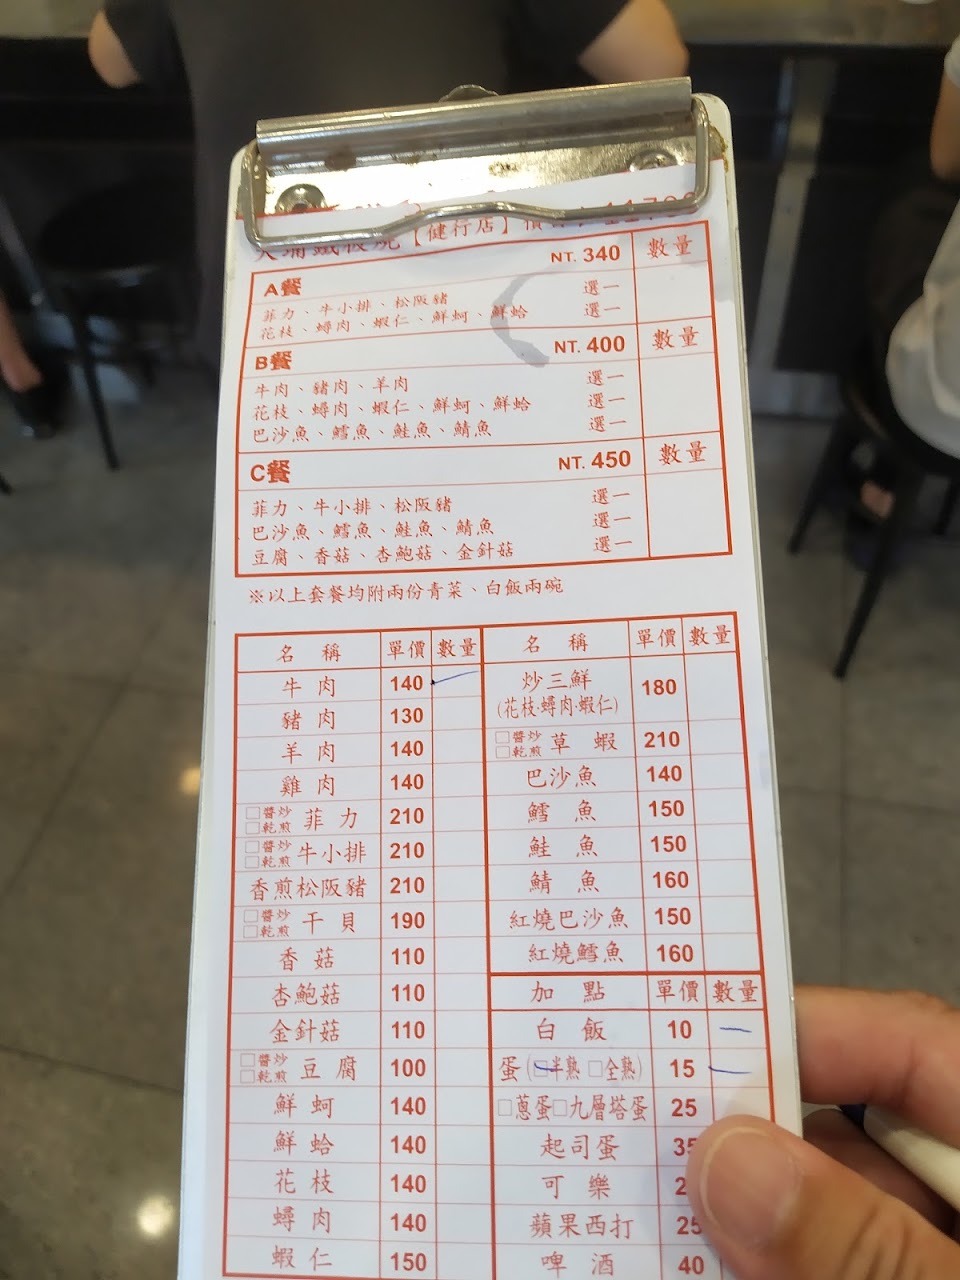 【健行店】
A餐 NT. 340 數量
菲力、牛小排、松阪豬 選一
花枝、蟳肉、蝦仁、鮮蚵、鮮蛤 選一
B餐 NT. 400 數量
牛肉、豬肉、羊肉 選一
花枝、蟳肉、蝦仁、鮮蚵、鮮蛤 選一
巴沙魚、鱈魚、鮭魚、鯖魚 選一
C餐 NT. 450 數量
菲力、牛小排、松阪豬 選一
巴沙魚、鱈魚、鮭魚、鯖魚 選一
豆腐、香菇、杏鮑菇、金針菇 選一
※以上套餐均附兩份青菜、白飯兩碗
名稱 單價 數量
牛肉 140
豬肉 130
羊肉 140
雞肉 140
□醬炒 □乾煎 菲力 210
□醬炒 □乾煎 牛小排 210
香煎松阪豬 210
□醬炒 □乾煎 干貝 190
香菇 110
杏鮑菇 110
金針菇 110
□醬炒 □乾煎 豆腐 100
鮮蚵 140
鮮蛤 140
花枝 140
蟳肉 140
蝦仁 150
名稱 單價 數量
炒三鮮 180
(花枝·蟳肉·蝦仁)
□醬炒 □乾煎 草蝦 210
巴沙魚 140
鱈魚 150
鮭魚 150
鯖魚 160
紅燒巴沙魚 150
紅燒鱈魚 160
加點 單價 數量
白飯 10
蛋(□半熟 □全熟) 15
□蔥蛋□九層塔蛋 25
起司蛋 35
可樂
蘋果西打 25
啤酒 40